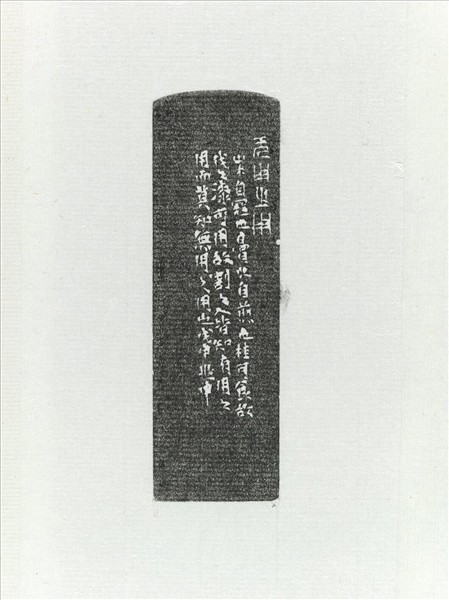 无用之用
山木自寇也膏火自煎也桂可食故
伐之漆可用故割之人皆知有用之
用而莫知無用之用也戊申